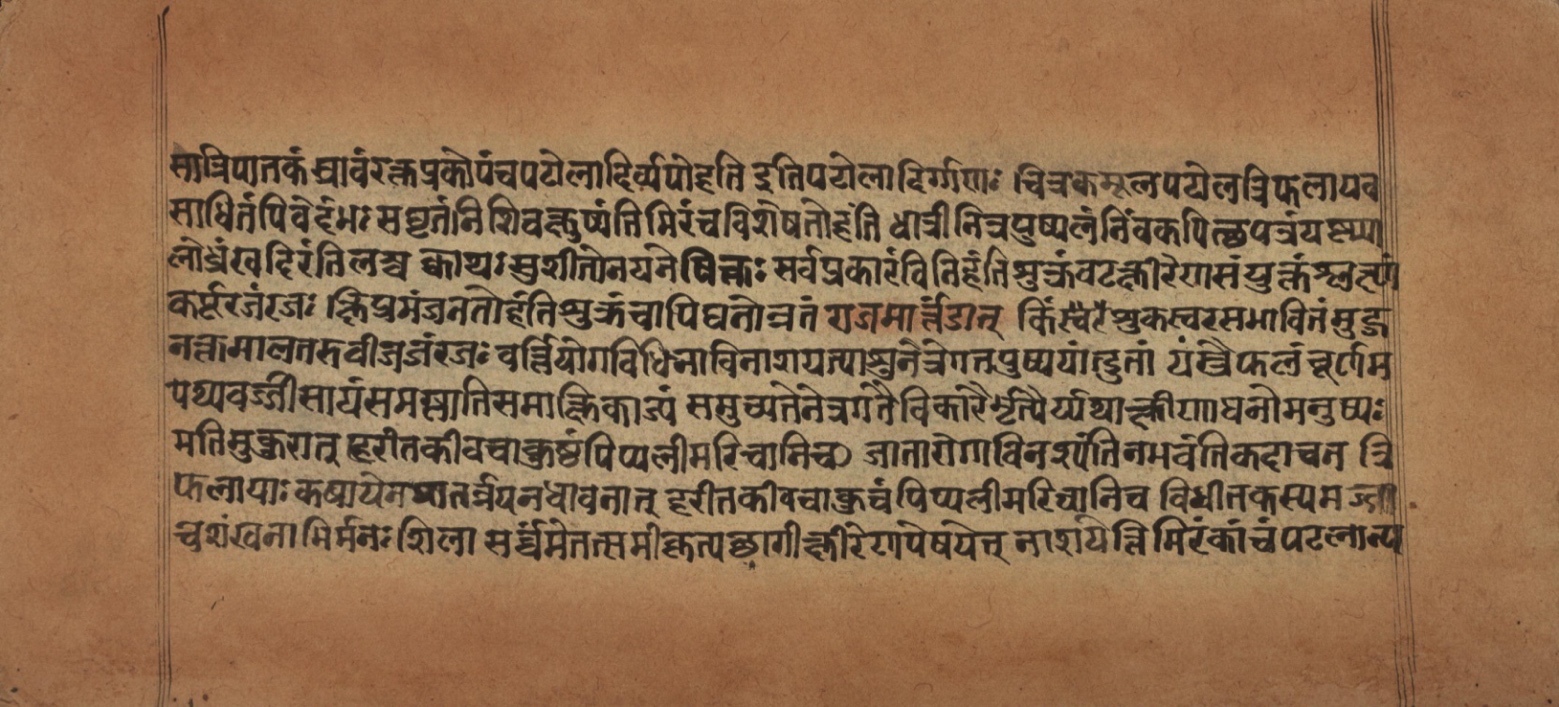 मात्रिपातकं स्रावंरक्तप्रकोपंचपटोलादिर्व्यपोहति इतिपटोलादिर्ग्गणः चित्रकमूलपटोलत्रिफलायव
साधितंपिवेदंभः सघृतंनिशिवक्षुष्यंतिमिरंचविशेषतोहंति धात्री
लोध्रंखदिरंतिलस्च क्वाथः सुशीतोनयने सर्वप्रकारंविनिहंतिशुक्रंवटक्षीरेणसंयुक्तं
कर्प्पूरजंरजः क्षिप्रमंजनतोहंतिशुक्रंचापिघनोन्नतं राजमार्त्तंडात् किंशुकस्वरसभावितंमुहु
नक्तमालतरुवीजजंरजः वर्त्तियोगविधिनाविनाशयत्याशुनेत्रगतपुष्पयांत्पुतां यंस्त्रैफलंचूर्ण्णम
पथ्यवर्ज्जीसायंसमश्नातिसमाक्षिकाज्यं समुच्यतेनेत्रगतैविकारैर्भृत्यैर्यथाक्षीणधनोमनुष्यः
मतिमुकुरात् हरीतकीवचाकुष्ठंपिप्पलीमरिचानिच जातारोगाविनश्यंतिनभवंतिकदाचन त्रि
फलायाः कषायेनप्रातर्न्नयनधावनात् हरीतकीवचाकुष्ठंपिप्पलीमरिचानिच विभीतकस्यमज्जा
चशंखनाभिर्मनःशिला सर्व्वमेतत्समीकृत्यछागीक्षीरेणपेषयेत् नाशयेत्तिमिरंकाचंपटलान्य